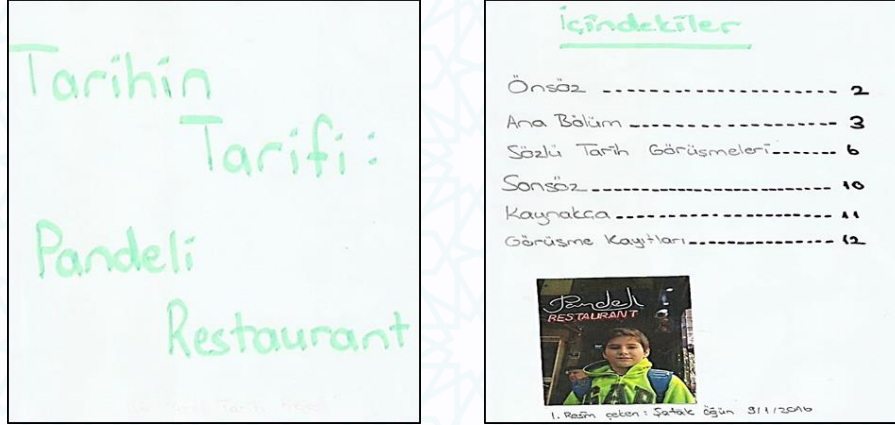 Tarihin
Tarifi:
Pandeli
Restaurant
İçindekiler
Önsöz ---------------------- 2
Ana Bölüm ------------------- 3
Sözlü Tarih Görüşmeleri------- 6
Sonsöz ---------------------- 10
Kaynakça -------------------- 11
Görüşme Kayıtları------------- 12
Pandeli
RESTAURANT
GAP
1. Resim çeken: Şafak Öğün 9/1/2016